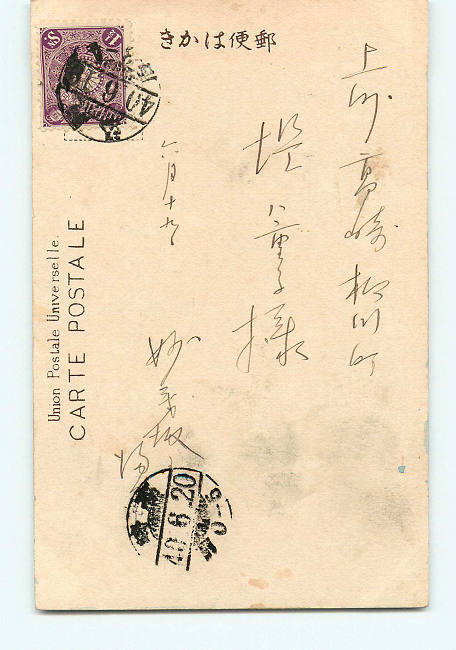 郵便はかき
上州高崎柳川町
堤八重子様
六月十九
妙義
40 6
Union Postale Universelle.
CARTE POSTALE
40 6 20